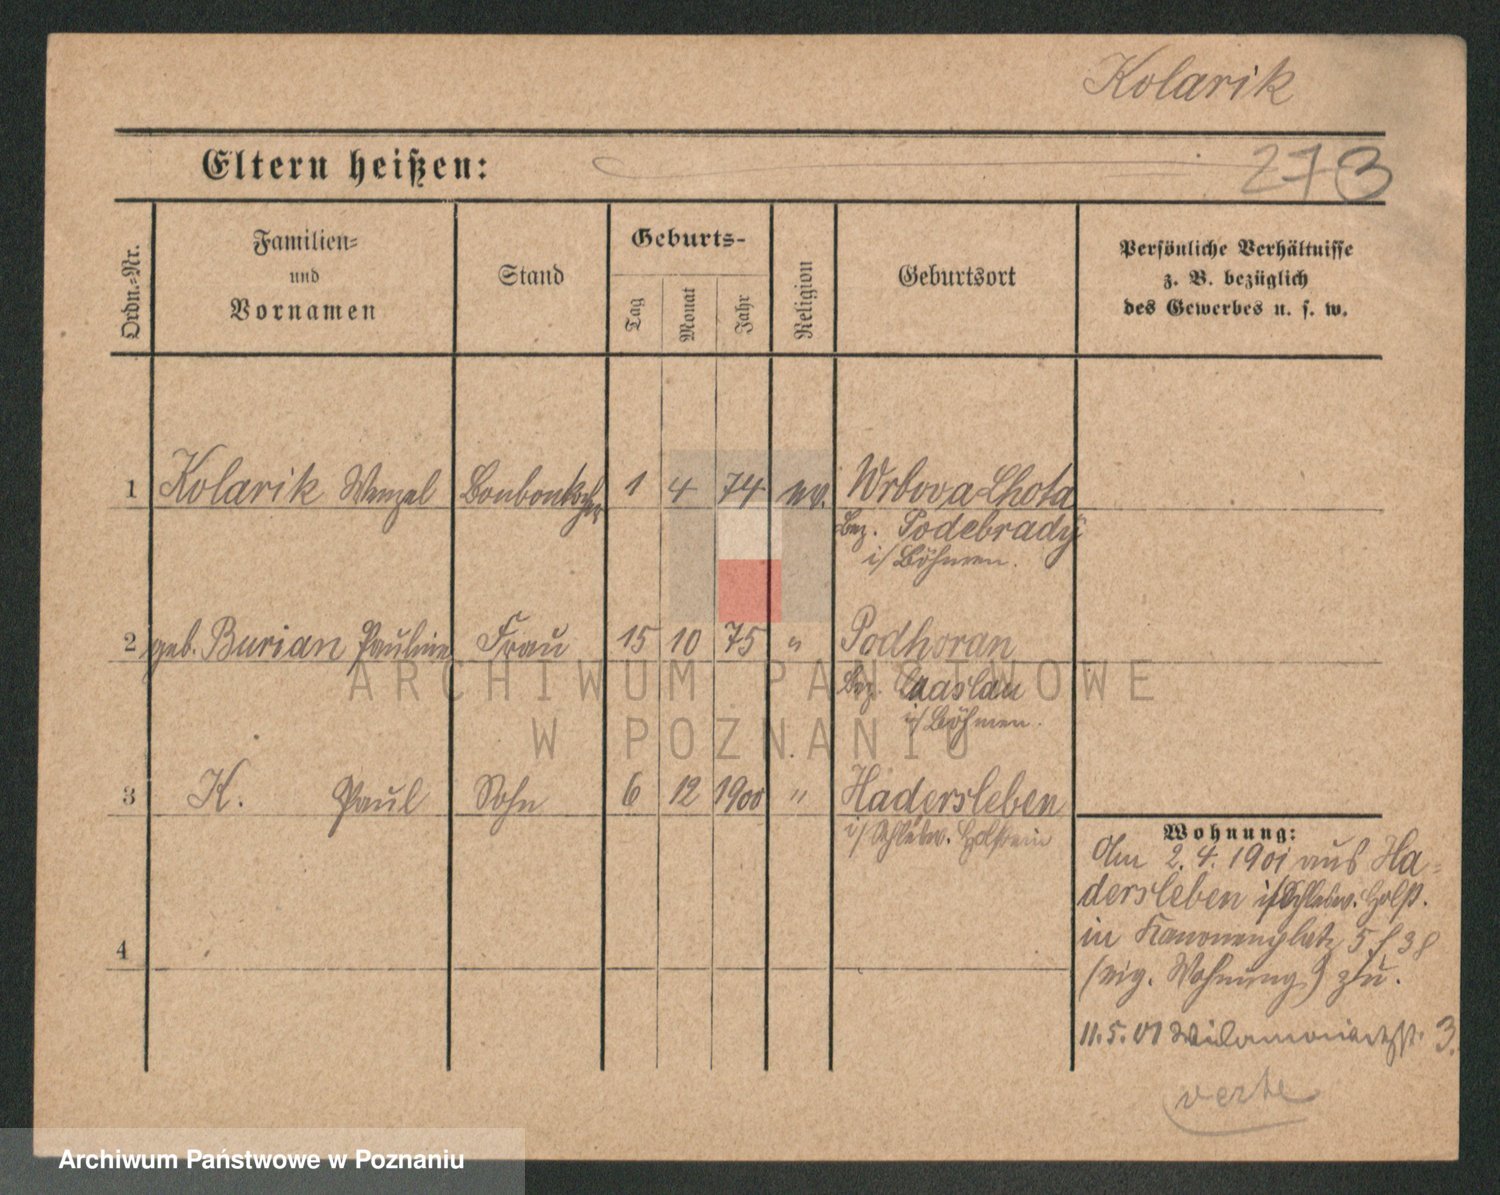 Kolarik
Eltern heißen:
273
Ordn.-Nr.
Familien-
und
Vornamen
Stand
Geburts-
Tag
Monat
Jahr
Religion
Geburtsort
Persönliche Verhältnisse
z. B. bezüglich
des Gewerbes u. s. w.
1 Kolarik Wenzel Bonbonkocher 1 4 74 ev. Wrbova Lhota
Bez. Podebrady
i/ Böhmen.
2 geb. Burian Pauline Frau 15 10 75 " Podhoran
Bez. Caaslau
i/ Böhmen.
3 K. Paul Sohn 6 12 1900 " Hadersleben
i/ Schlesw. Holstein
4
Wohnung:
Am 2. 4. 1901 aus Ha-
dersleben i/Schlesw. Holst.
in Kanonenplatz 5
(eig. Wohnung) zu.
11.5.01 3.
verte
ARCHIWUM PAŃSTWOWE
W POZNANIU
Archiwum Państwowe w Poznaniu